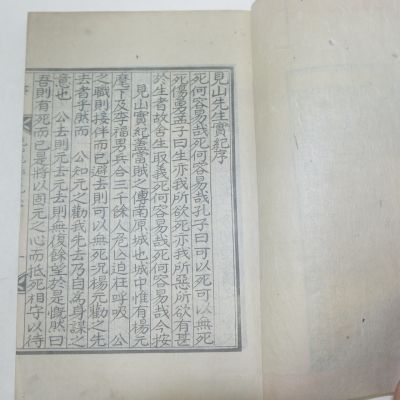 見山先生實紀序
死何容易哉死何容易哉孔子曰可以死可以無死
死傷勇孟子曰生亦我所欲死亦我所惡所欲有甚
於生者故舍生取義死何容易哉死何容易哉今按
見山實紀蓋當賊之傳南原城也城中惟有楊元
麾下及李福男兵合三千餘人危凶迫在呼吸 公
之職則接伴而已避去則可以無死况楊元勸之先
去者乎然而 公知元之勸我先去乃自為身謀之
意也 公去則元去元去則無復餘望於是慨然曰
吾則有死而已是將以固元之心而抵死相守以待